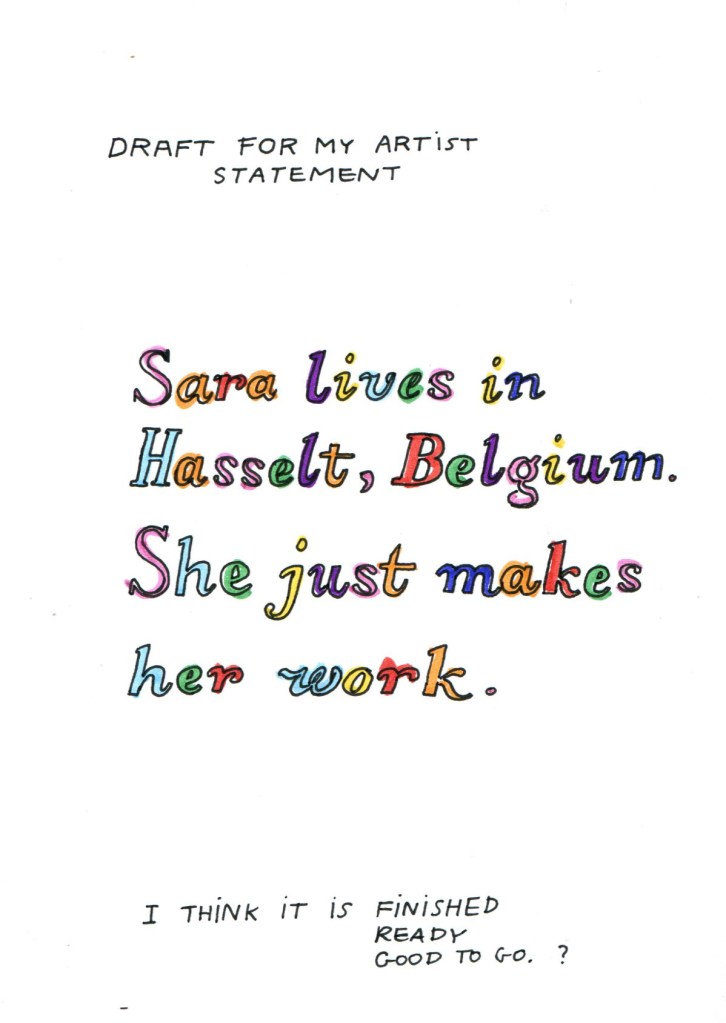 DRAFT FOR MY ARTiST
STATEMENT
Sara lives in
Hasselt, Belgium.
She just makes
her work.
I THiNK iT iS FiNiSHED
READY
GOOD TO GO. ?